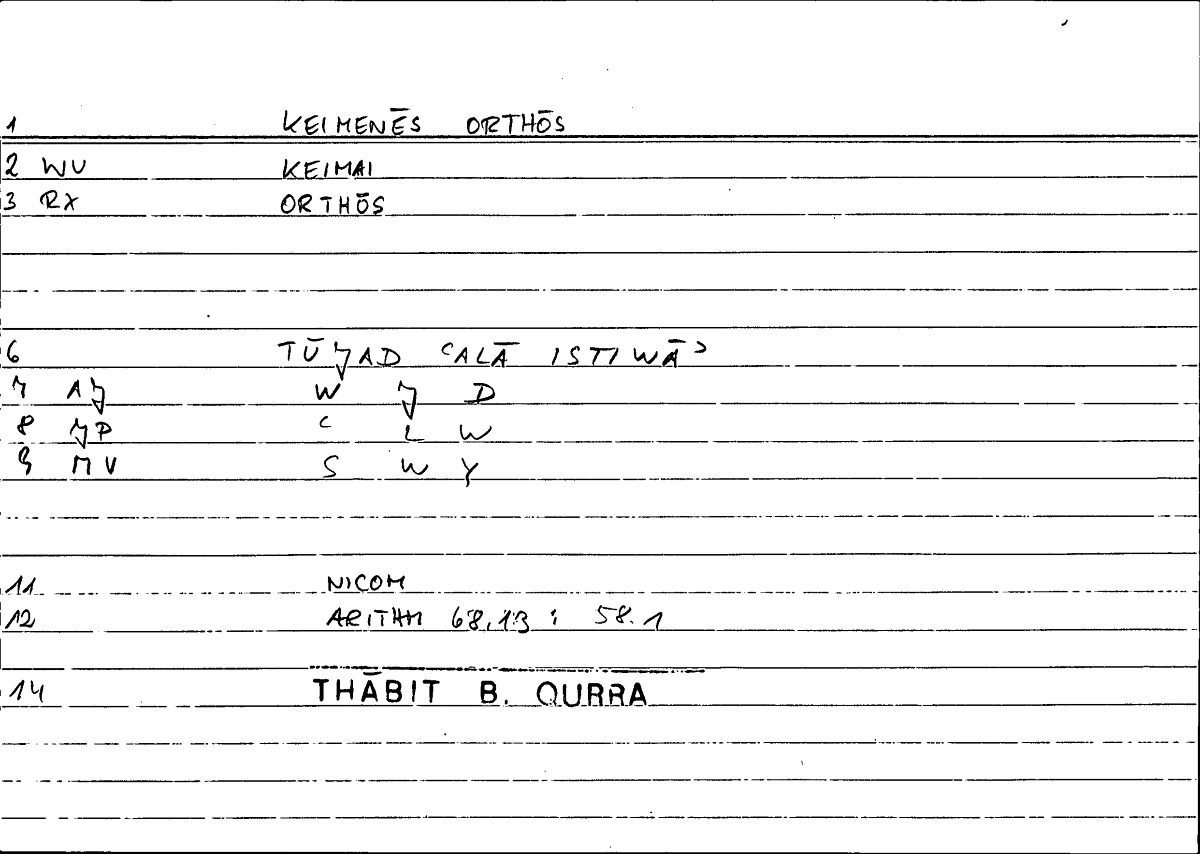 1 KEIMENĒS ORTHŌS
2 WU KEIMAI
3 RX ORTHŌS
6 TŪJAD ʿALĀ ISTIWĀʾ
7 AJ W J D
8 JP ʿ L W
9 MV S W Y
11 NICOM
12 ARITHM 68.13 : 58.1
14 THĀBIT B. QURRA